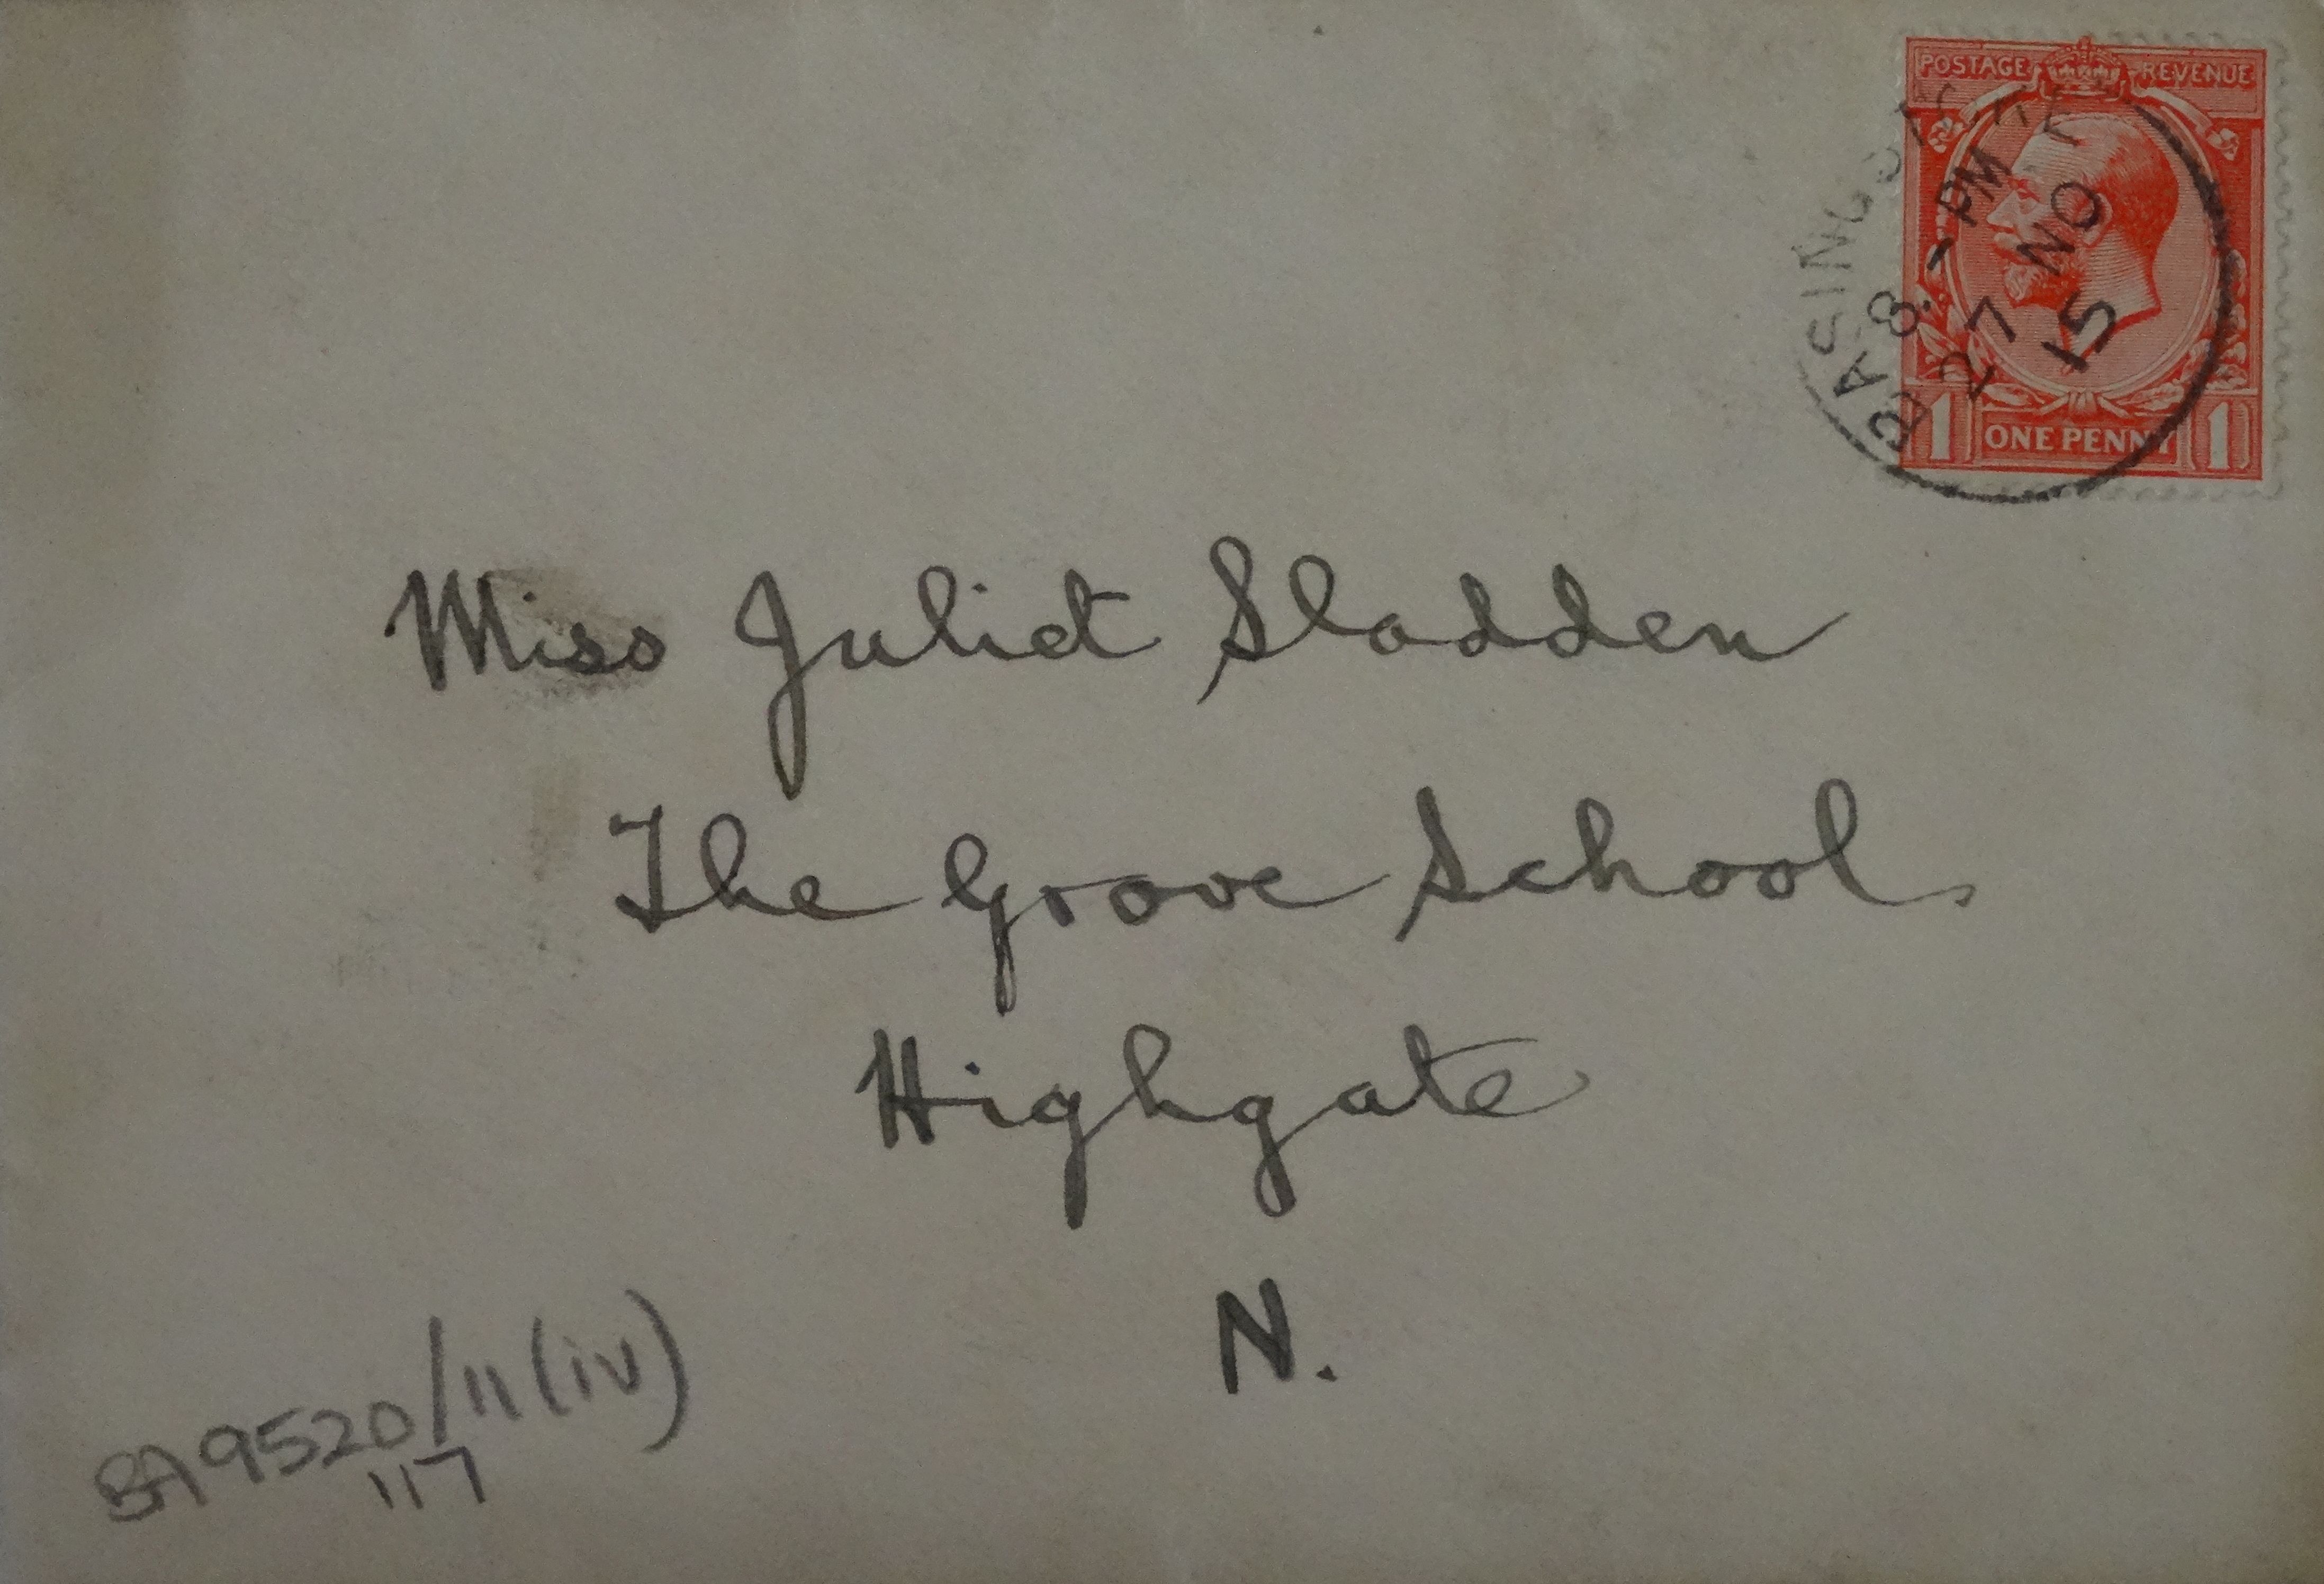 POSTAGE REVENUE
BASINGSTOKE
8 - PM
27 NO
15
1 ONE PENNY 1
Miss Juliet Sladden
The Grove School,
Highgate
N.
BA9520/11(iv)
117